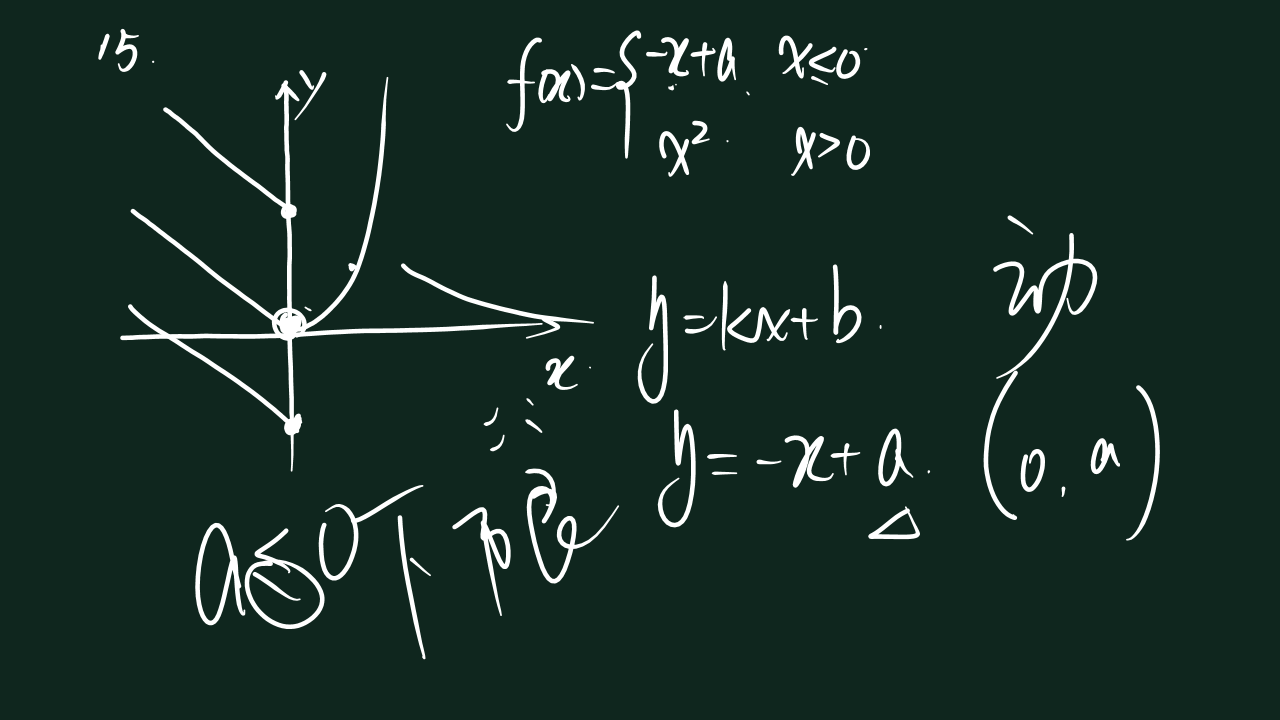 15.
y
f(x)={-x+a x≤0
x² x>0
x
y=kx+b.
y=-x+a.
(0,a)
a≤0